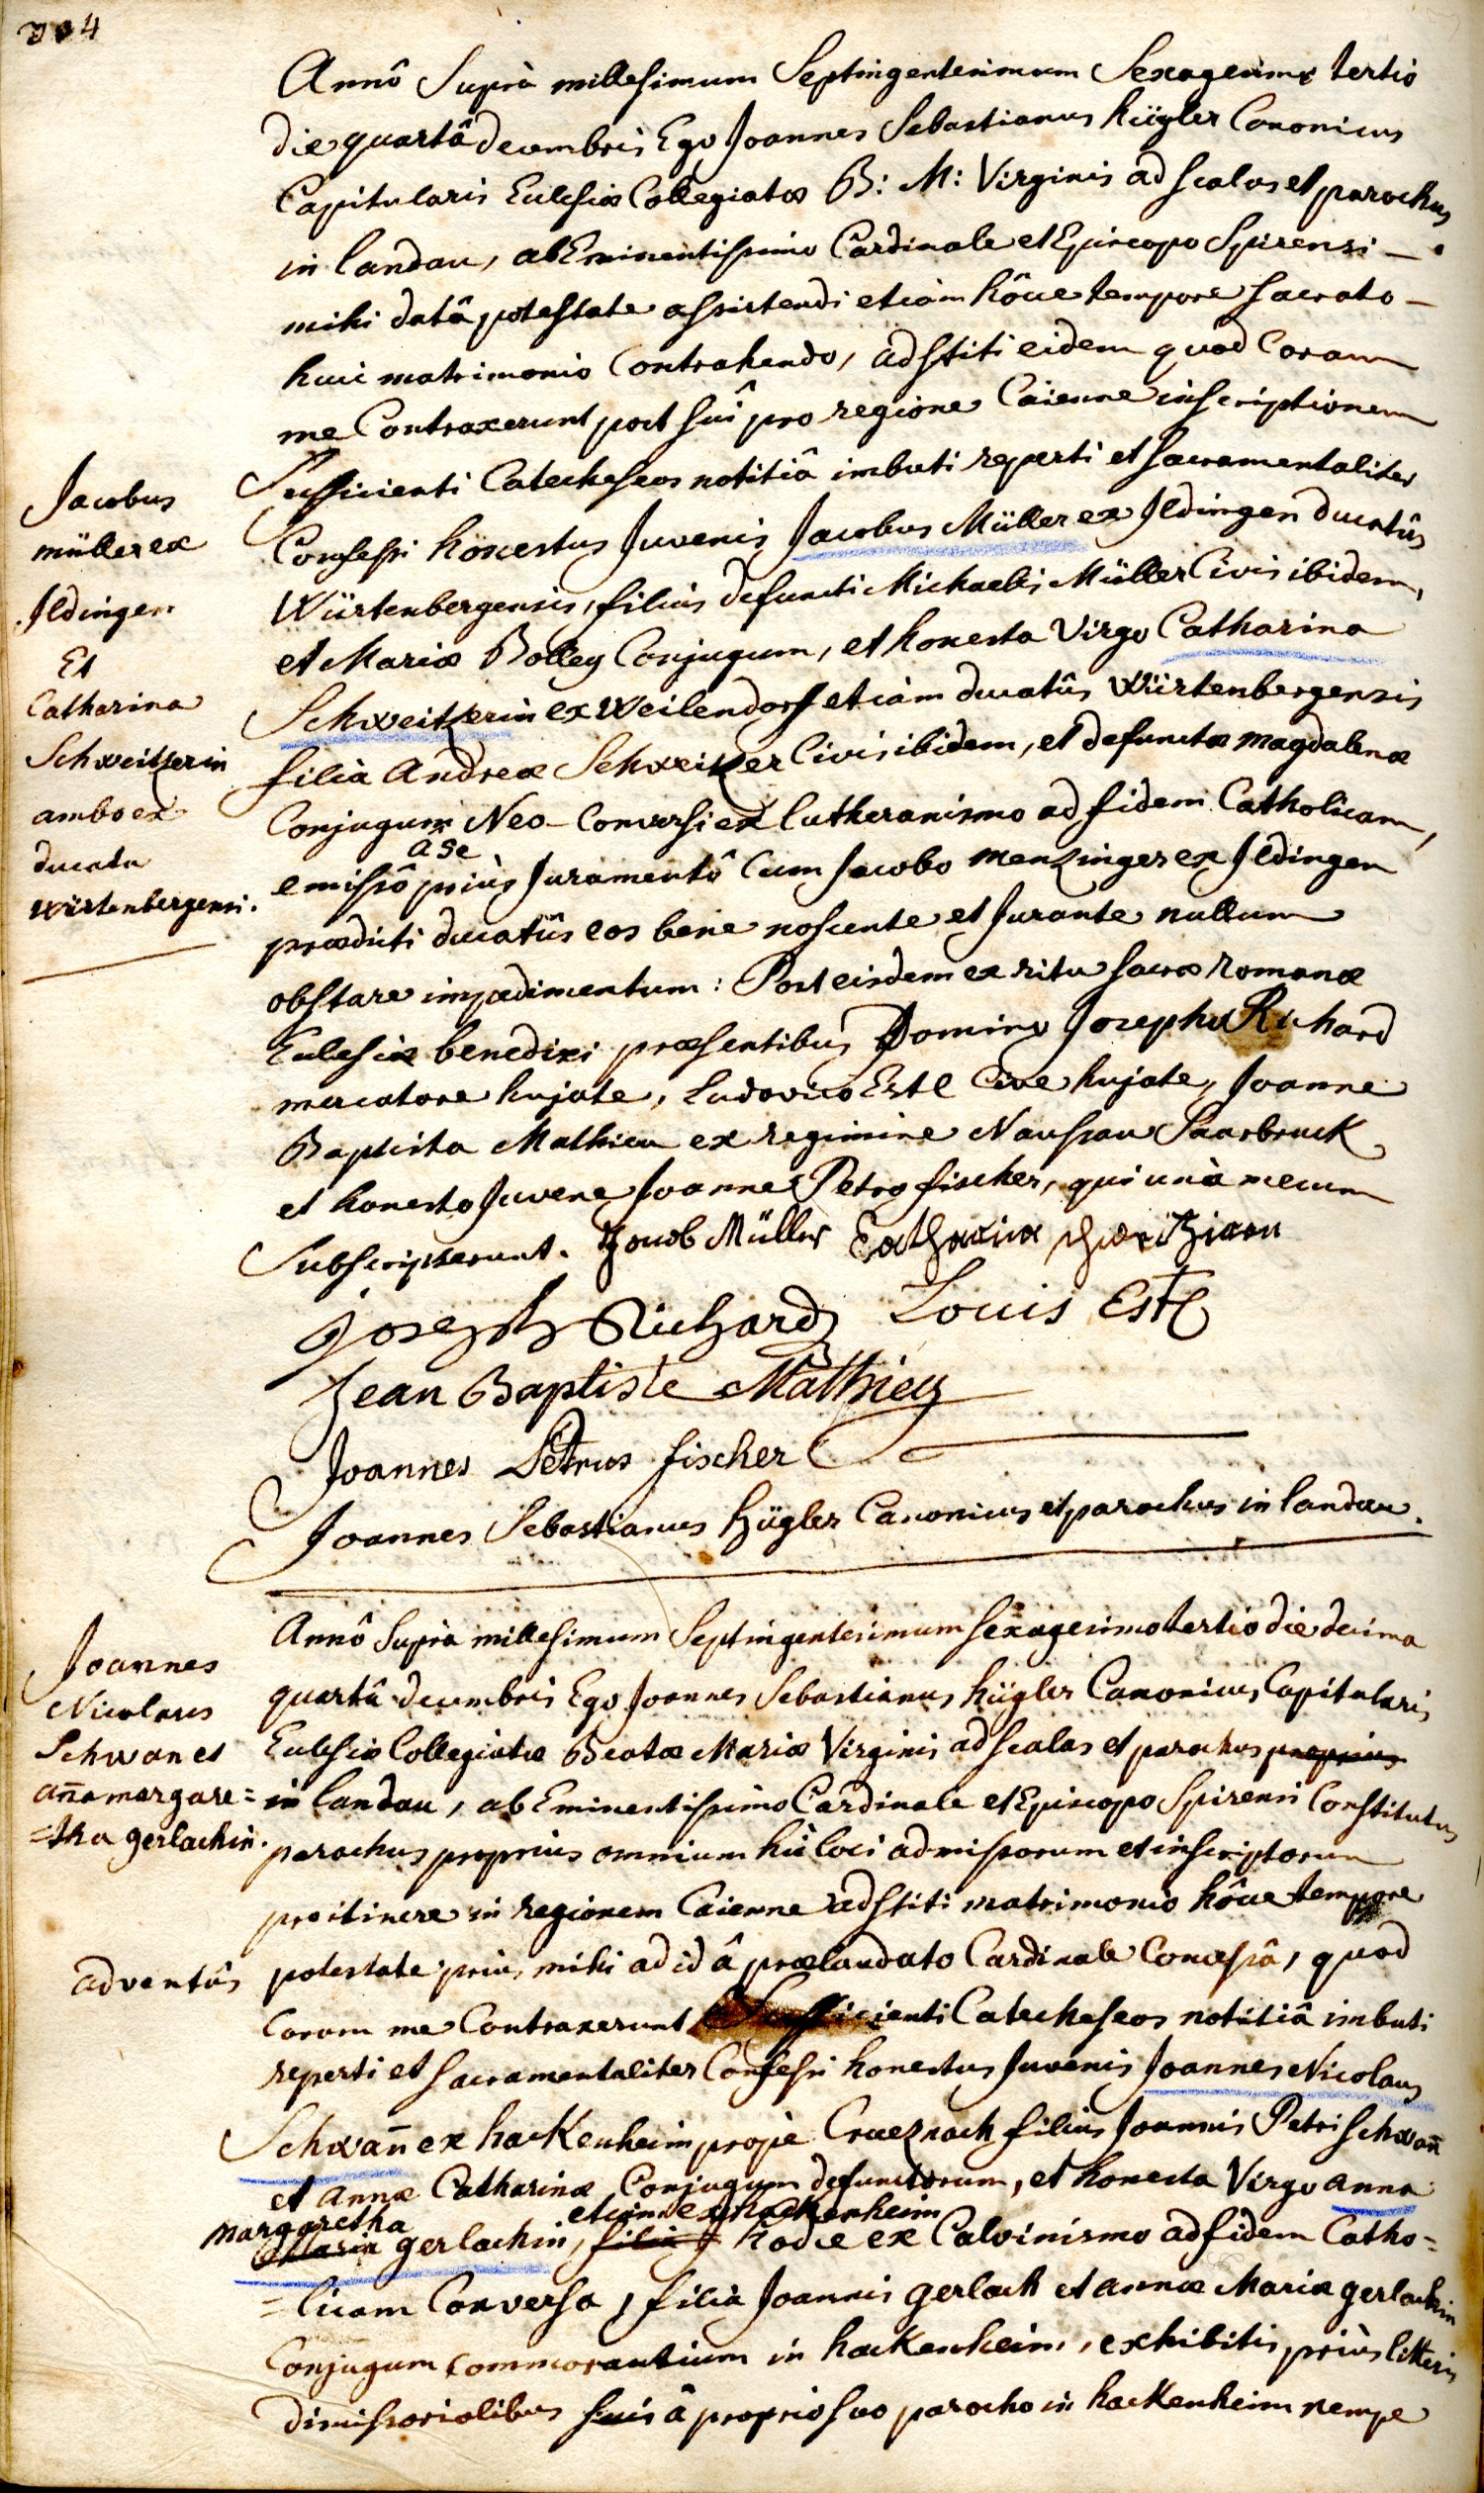 304
Annô Suprà millesimum Septingentesimum Sexagesimo tertio
die quartâ decembris Ego Joannes Sebastianus hügler Canonicus
Capitularis Eulesiæ Collegiatæ B: M: Virginis ad scalas et parochus
in landau, ab Eminentissimo Cardinale et Episcopo Spirensi
mihi datâ potestate assistendi etiàm hôcce tempore sacrato
huic matrimonio Contrahendo, adstiti eidem quod Coram
me Contraxerunt post suî pro regione Caienne inscriptionem
Sufficienti Catecheseos notitiâ imbuti reperti et sacramentaliter
Confessi honestus Juvenis Jacobus Müller ex Jldingen ducatûs
Würtenbergensis, filius defuncti Michaelis Müller Civis ibidem,
et Mariæ Bolley Conjugum, et honesta Virgo Catharina
Schweitzerin ex Weilendorf etiàm ducatûs Würtenbergensis
filia Andreæ Schweitzer Civis ibidem, et defunctæ magdalenæ
Conjugum Neo-Conversi ex lutheranismo ad fidem Catholicam,
a se
emissô priùs Juramentô Cum Jacobo menzinger ex Jldingen
prædicti ducatûs eos bene noscente et Jurante nullum
obstare impædimentum: Post eisdem ex ritu sacræ romanæ
Eulesiæ benedixi præsentibus Domino Josepho Richard
mercatore hujate, Ludovico Estl Cive hujate, Joanne
Baptista Mathieu ex regimine Naussau Saarbruck
et honesto Juvene Joanne Petro fischer, qui unà mecum
Subscripserunt. Jacob Müller Catharina
Joseph Richard Louis Estl
Jean Baptiste Mathieu
Joannes Petrus fischer
Joannes Sebastianus hügler Canonicus et parochus in landau.
Jacobus
müller ex
Jldingen
Et
Catharina
Schweitzerin
ambo ex
ducatu
würtenbergensi.
Annô Suprà millesimum Septingentesimum sexagesimo tertio die decima
quartâ decembris Ego Joannes Sebastianus hügler Canonicus Capitularis
Eulesiæ Collegiatæ Beatæ Mariæ Virginis ad scalas et parochus proprius
in landau, ab Eminentissimo Cardinale et Episcopo Spirensi Constitutus
parochus proprius omnium hic loci admissorum et inscriptorum
pro itinere in regionem Caienne adstiti matrimonio hôcce tempore
adventûs potestate prius mihi ad id â prælaudato Cardinale Concessâ, quod
Coram me Contraxerunt Sufficienti Catecheseos notitiâ imbuti
reperti et sacramentaliter Confessi honestus Juvenis Joannes Nicolaus
Schwan̄ ex hackenheim propè Creeznach filius Joannis Petri Schwan̄
et Annæ Catharinæ Conjugum defunctorum, et honesta Virgo anna
etiam ex hackenheim
margaretha
Maria gerlachin, filia hodie ex Calvinismo ad fidem Catho=
=licam Conversa, filia Joannis gerlach et annæ Mariæ gerlachin
Conjugum commorantium in hackenheim, exhibitis priùs litteris
dimissorialibus suis â proprio suo parocho in hackenheim nempe
Joannes
Nicolaus
Schwan et
an̄a margare=
=tha gerlachin.